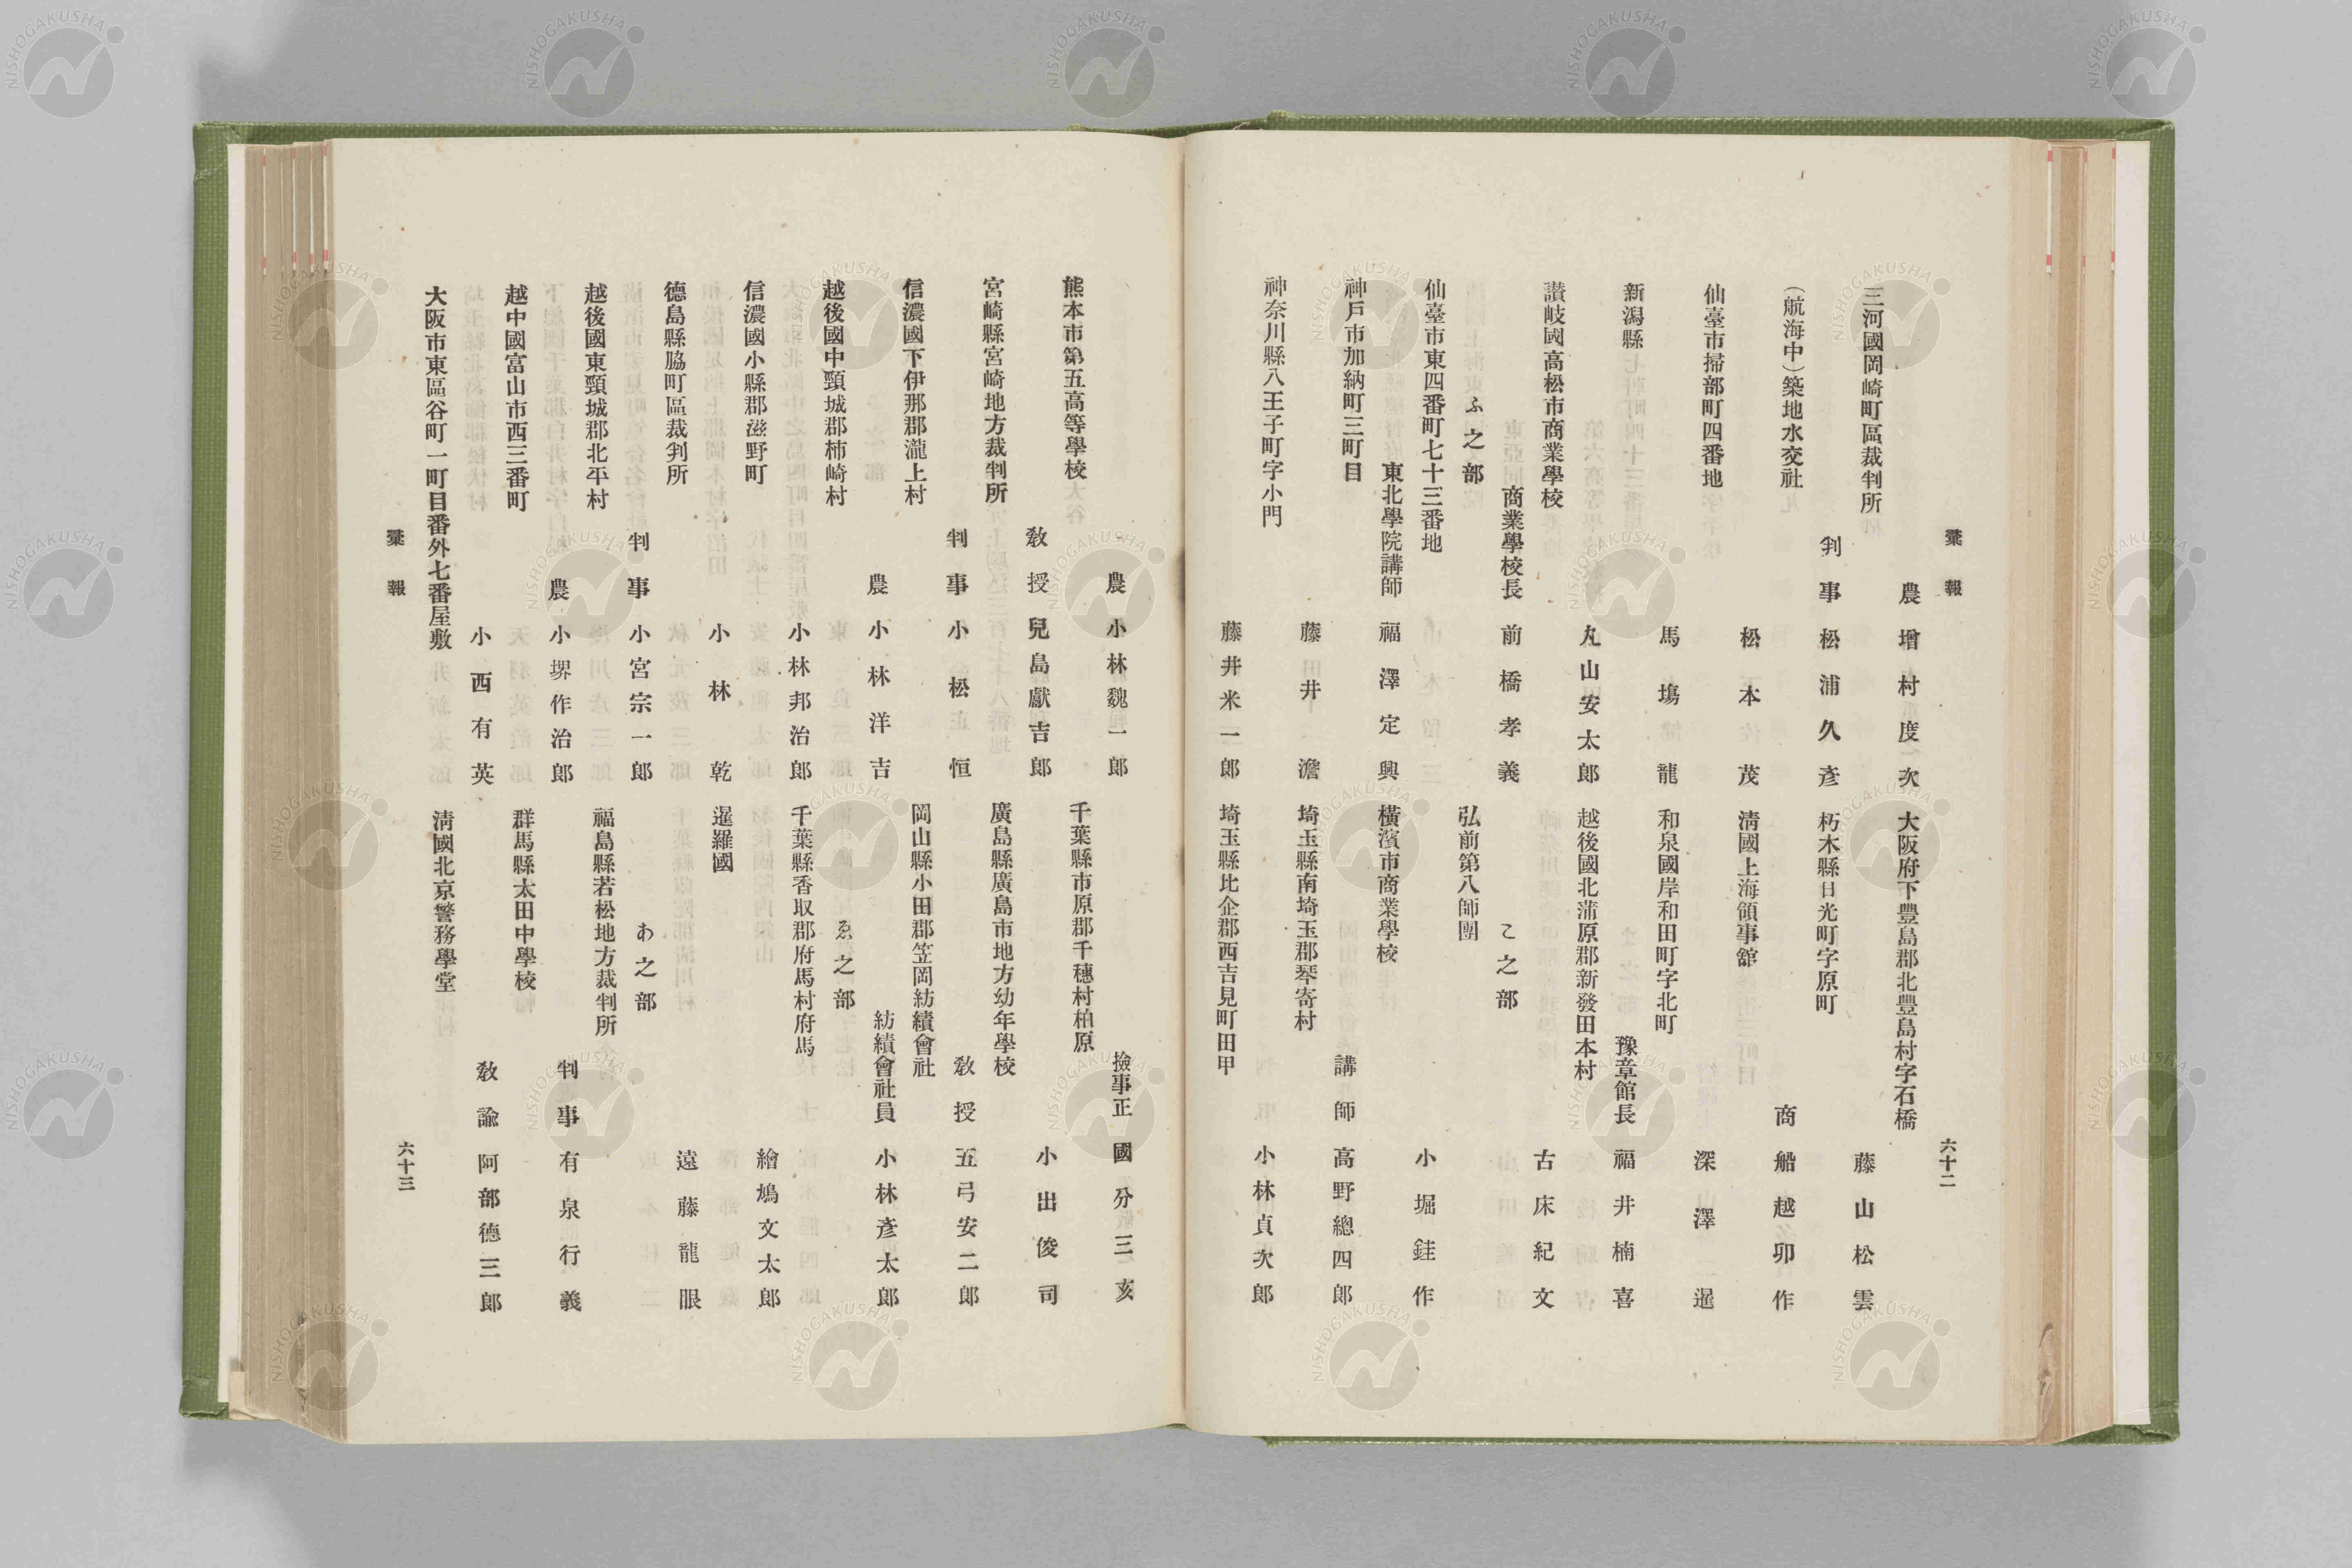 彙報
六十二
農 增村度次
三河國岡崎町區裁判所
判事 松浦久彥
(航海中)築地水交社
松本茂
仙臺市掃部町四番地
馬塲龍
新潟縣
丸山安太郎
讃岐國高松市商業學校
商業學校長 前橋孝義
ふ之部
仙臺市東四番町七十三番地
東北學院講師 福澤定興
神戶市加納町三町目
藤井澹
神奈川縣八王子町字小門
藤井米一郎
大阪府下豐島郡北豐島村字石橋
藤山松雲
朽木縣日光町字原町
商 船越卯作
淸國上海領事館
深澤暹
和泉國岸和田町字北町
豫章館長 福井楠喜
越後國北蒲原郡新發田本村
古床紀文
こ之部
弘前第八師團
小堀銈作
橫濱市商業學校
講師 高野總四郎
埼玉縣南埼玉郡琴寄村
小林貞次郎
埼玉縣比企郡西吉見町田甲
農 小林魏一郎
熊本市第五高等學校
敎授 兒島獻吉郎
宮崎縣宮崎地方裁判所
判事 小松恒
信濃國下伊那郡瀧上村
農 小林洋吉
越後國中頸城郡柿崎村
小林邦治郎
信濃國小縣郡滋野町
小林乾
德島縣脇町區裁判所
判事 小宮宗一郎
越後國東頸城郡北平村
農 小堺作治郎
越中國富山市西三番町
小西有英
大阪市東區谷町一町目番外七番屋敷
撿事正 國分三亥
千葉縣市原郡千穗村柏原
小出俊司
廣島縣廣島市地方幼年學校
敎授 五弓安二郎
岡山縣小田郡笠岡紡績會社
紡績會社員 小林彥太郎
ゑ之部
千葉縣香取郡府馬村府馬
繪鳩文太郎
暹羅國
遠藤龍眼
あ之部
福島縣若松地方裁判所
判事 有泉行義
群馬縣太田中學校
敎諭 阿部德三郎
淸國北京警務學堂
彙報
六十三